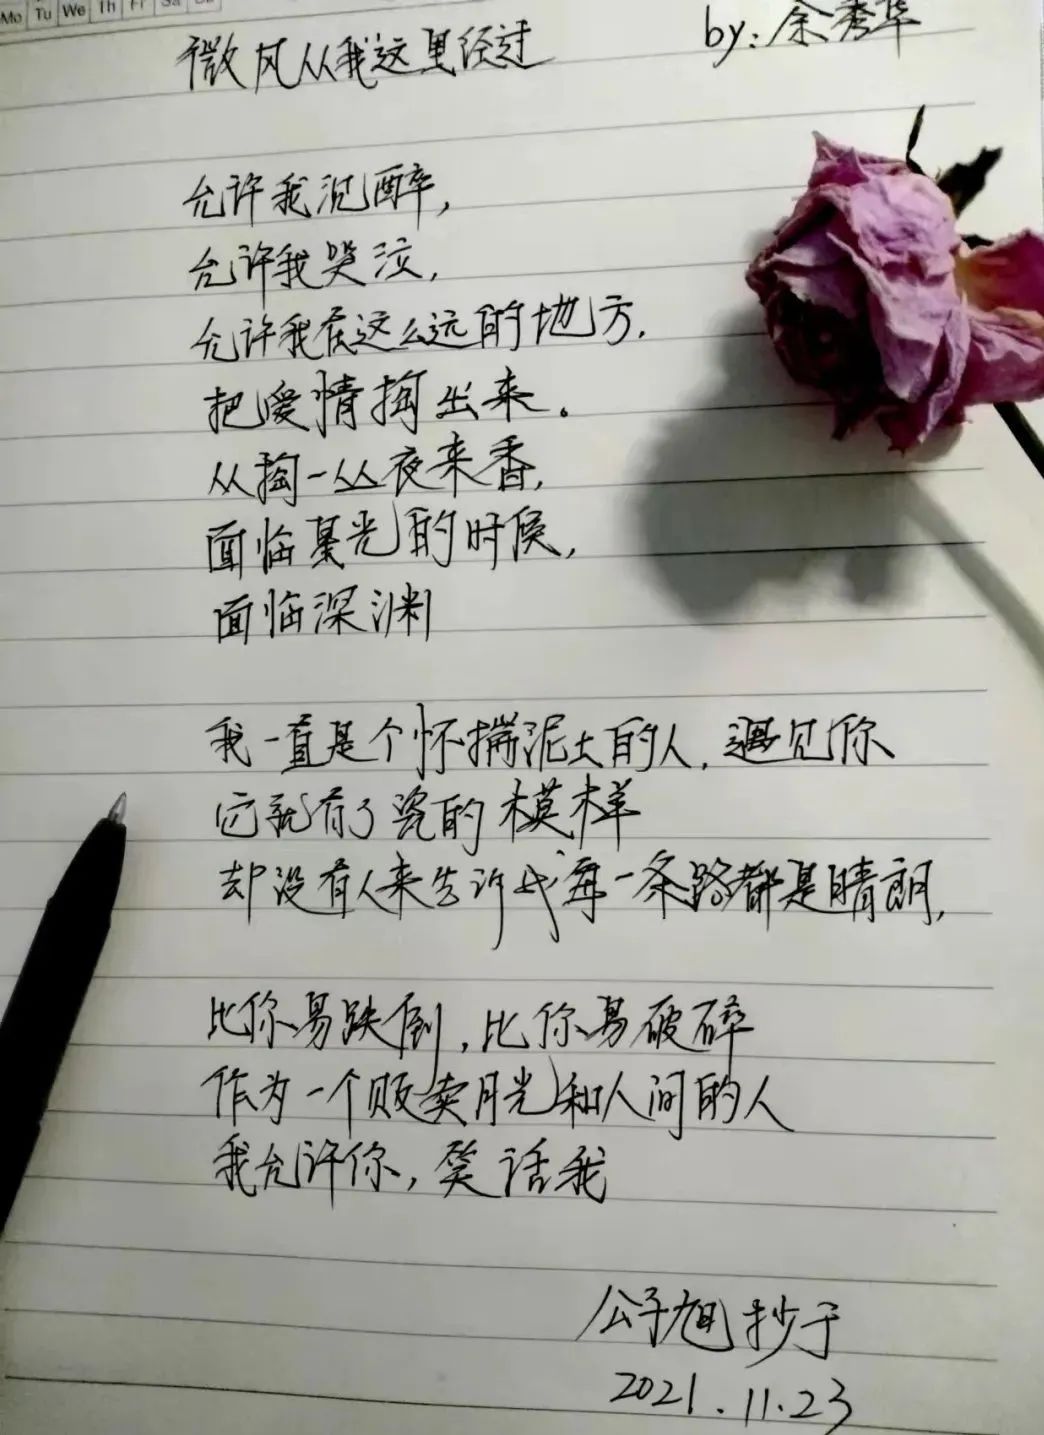 Mo Tu We Th Fr Sa Su
微风从我这里经过
by:余秀华
允许我沉醉,
允许我哭泣,
允许我在这么远的地方,
把爱情掏出来。
从掏一丛夜来香,
面临暮光的时候,
面临深渊
我一直是个怀揣泥土的人,遇见你
它就有了瓷的模样
却没有人来告诉我每一条路都是晴朗,
比你易跌倒,比你易破碎
作为一个贩卖月光和人间的人
我允许你,笑话我
公子旭 抄于
2021.11.23